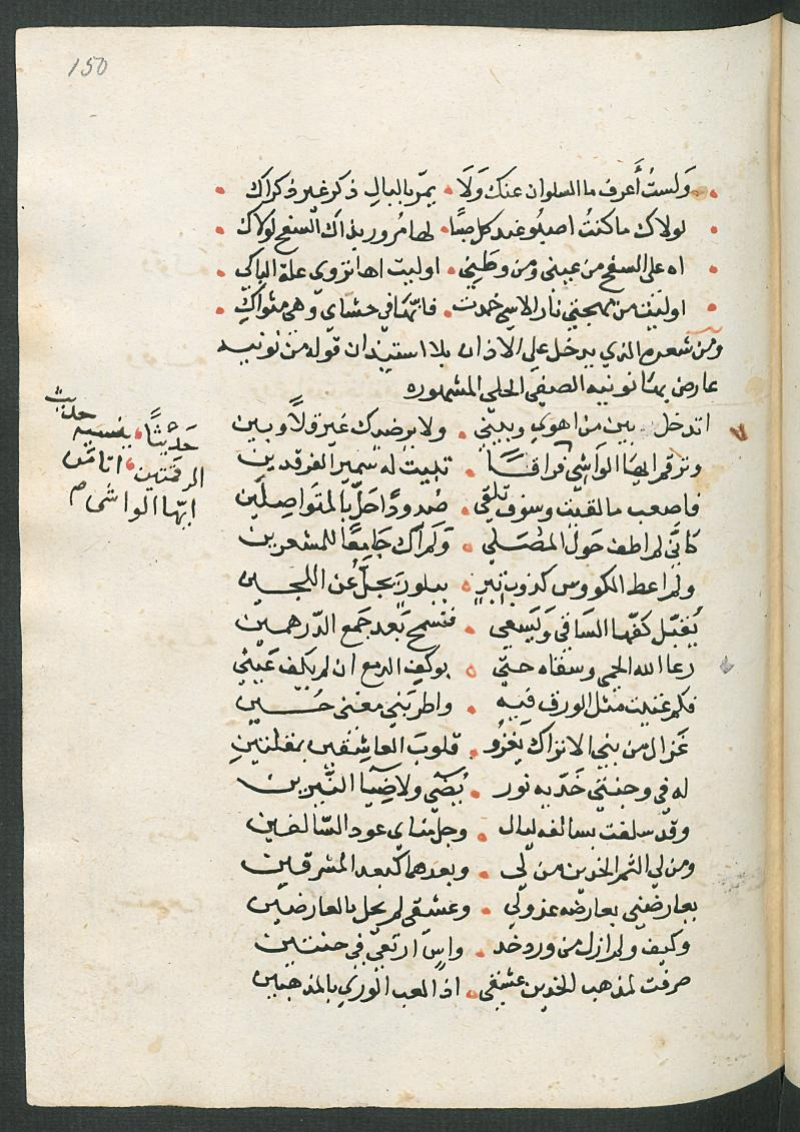 150
وَلستُ أَعرف ما السلوان عنك وَلَا • يمرّ بالبالِ ذكر غير ذكراك •
لولاك ما كنتُ اصبُو عند كل صبًا • لها مرور بذاك السفح لولاك •
اه على السفح من عيني ومن وطني • اوليت اها تروى علة الباكي •
اوليت من مهجتي نار الاسى خمدت • فانّها في حشاي وهى مثواكِ •
ومن شعره الذي يدخل على الاذان بلا استيذان قوله من نونيه
عارض بها نونيه الصفى الحلى المشهوره
اتدخل بين من اهوي وبيني • ولا يرضيك غير قلاً وبين
وتزقم ايها الواشي فراقًا • تبيت له سمير الفرقدين
فاصعب ما لقيت وسوف تلقى • صُدودًا حَلّ بالمتواصِلَين
كانّي لم اطف حَول المصَلي • وَلم اَك جَامِعًا للمشعرين
ولم اعط الكووس كذوب تبرٍ • ببلورٍ يجلُّ عن اللجين
يُقبّل كفّها السَاقي وَيَسعى • فتسمح بَعد جَمع الدّرهمين
رعا الله الحمى وسقاه حتى • بوكف الدمع ان لم يكف عَيني
فكم غنيت مثل الورق فيه • واطربَني مغنى حُسين
غزال من بني الاتراك يَغزُو • قلوبَ العاشقين بمقلتينِ
له في وجنتي خَدّيه نور • يُضى ولا ضِيا النَّيرين
وقد سلفت بسالفه ليال • وحل بناى عود السّالفين
ومن لي الثم الخدين من لى • وبعدهما كبعد المشرقين
يعارضني بعارضه عذولي • وعشقى لم يحل بالعارضين
وكيف ولم ازل من ورد خد • واسٍ ارتعي في جنتين
صرفت لمذهب الخدين عشقي • اذا لعب الوري بالمذهبين
حديث
حَدْيثًا • ينسيه
الرقمتين • اتا
ايها الواشى م